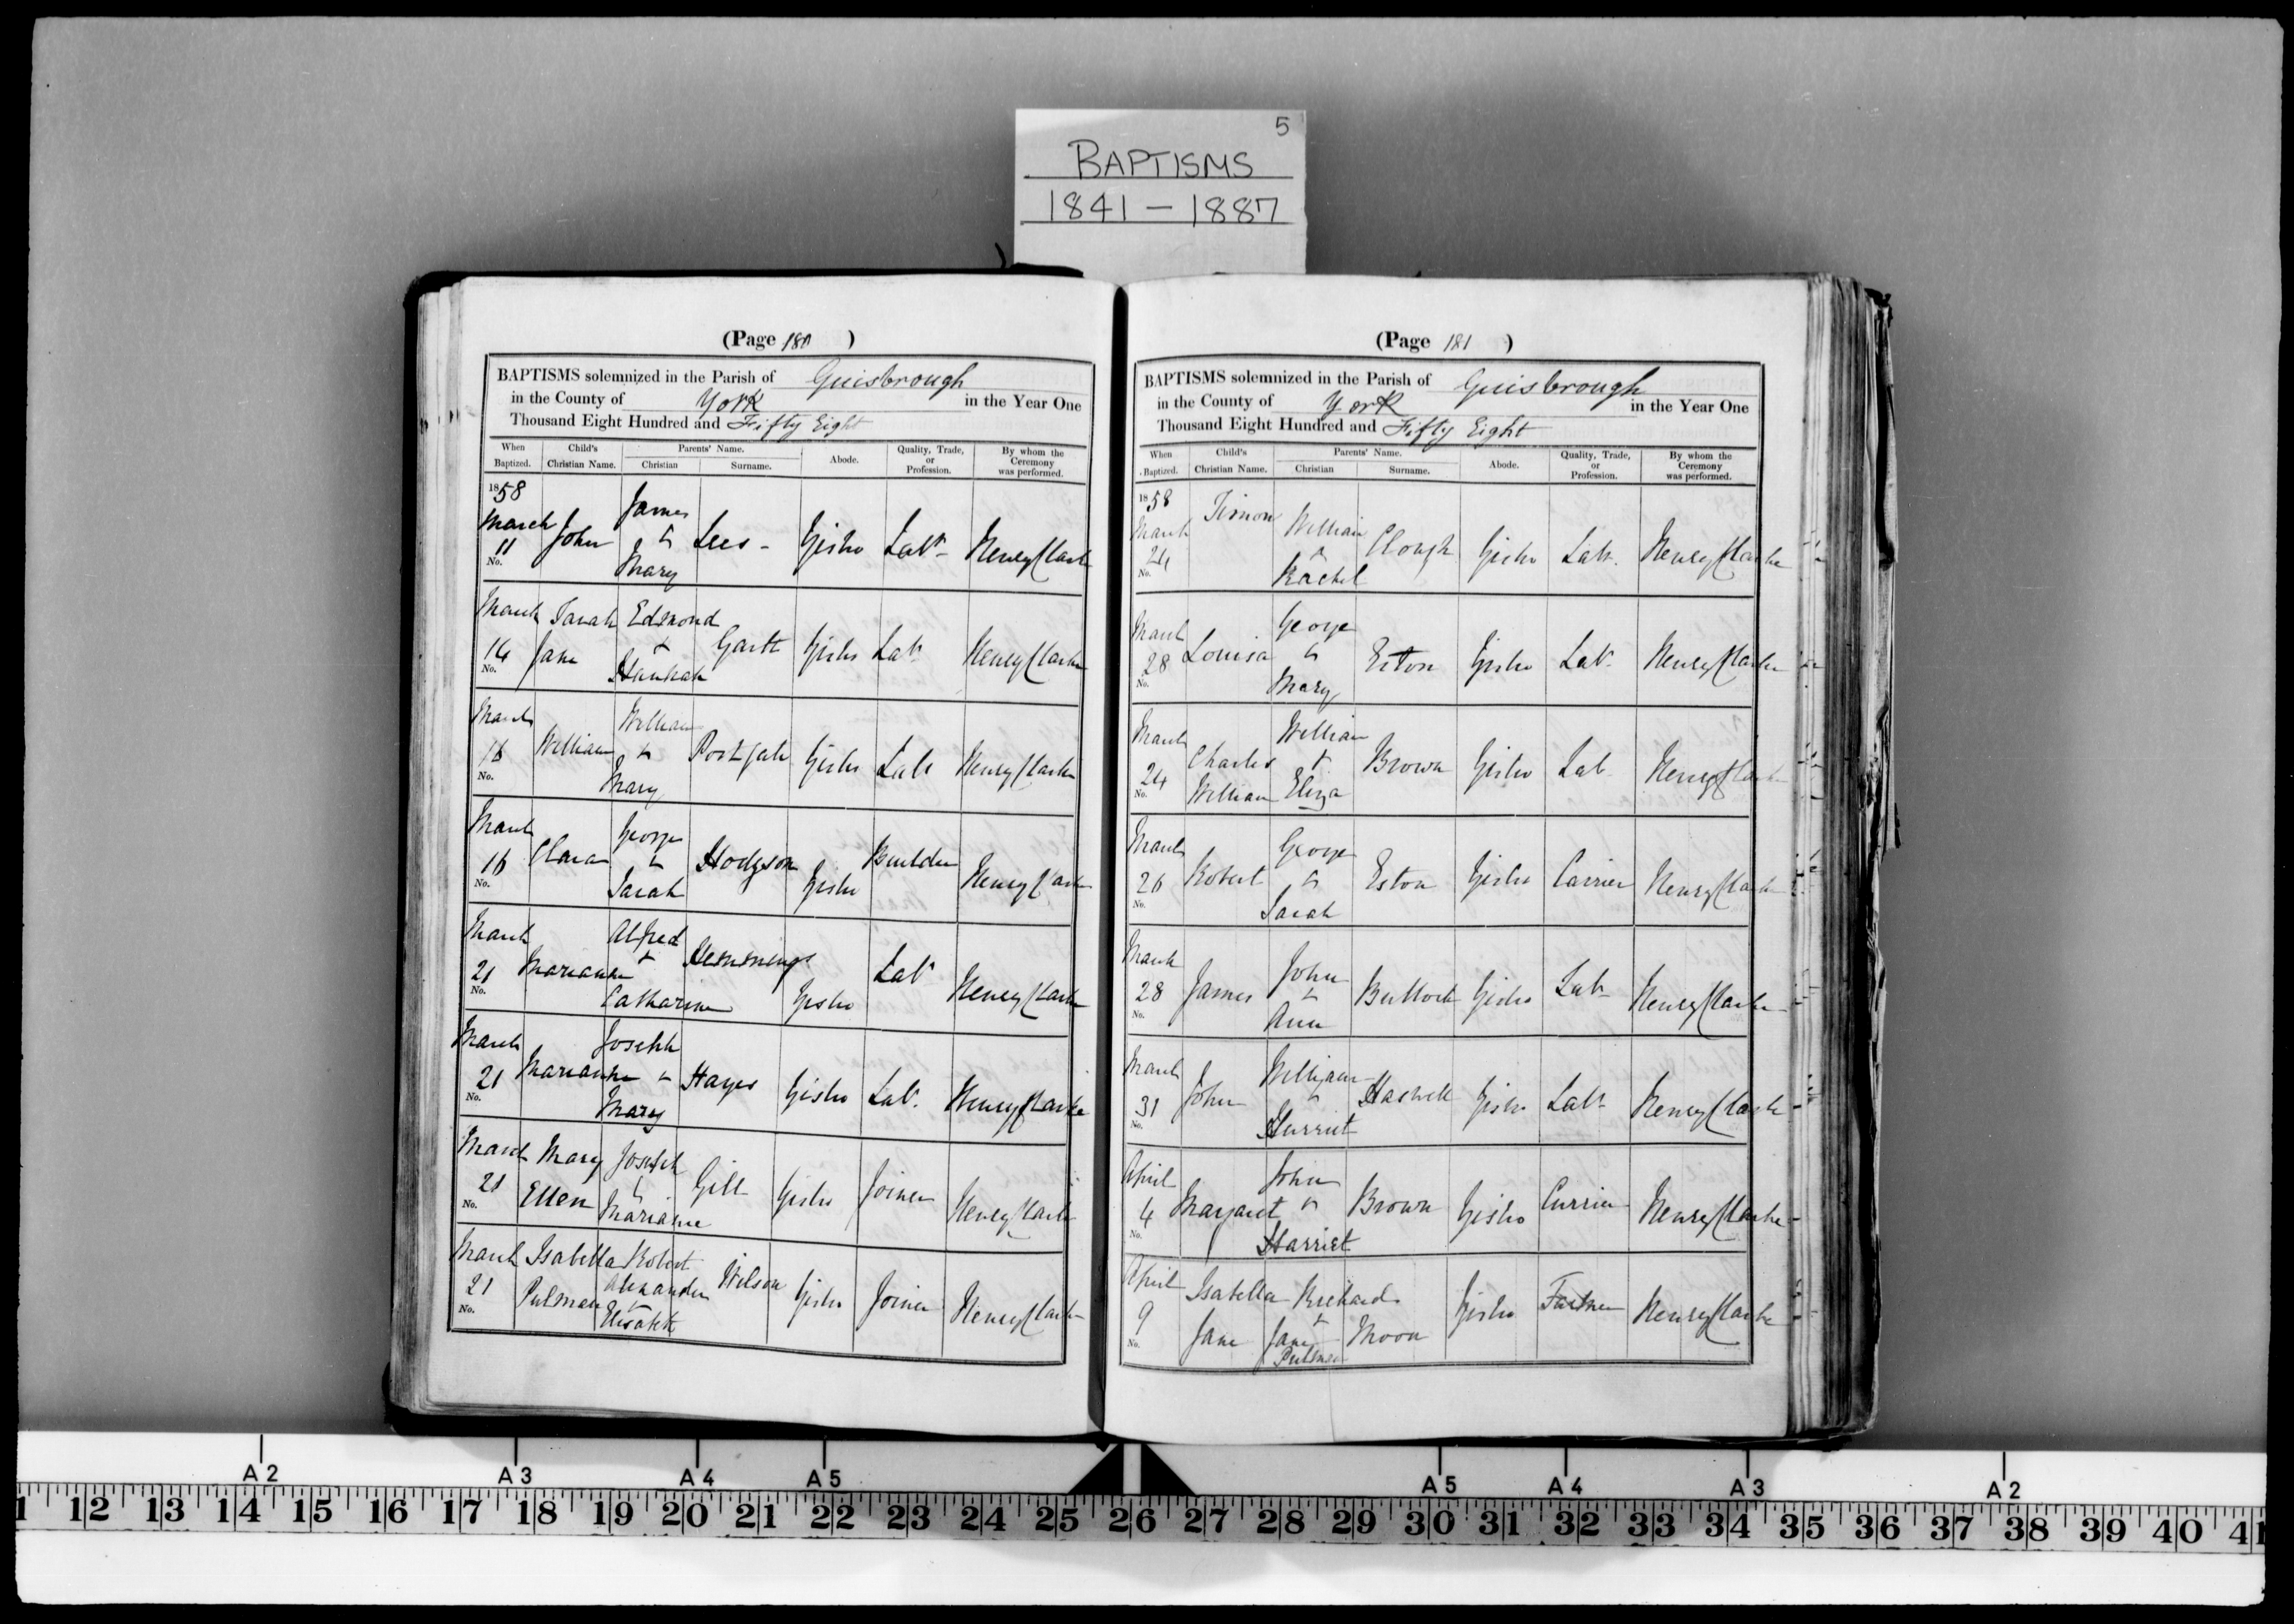 5
BAPTISMS
1841 – 1887
(Page 180 )
BAPTISMS solemnized in the Parish of Guisbrough
in the County of York in the Year One
Thousand Eight Hundred and Fifty Eight
When Baptized. Child's Christian Name. Parents' Name. Christian Surname. Abode. Quality, Trade, or Profession. By whom the Ceremony was performed.
1858
March 11 No. John James & Mary Lees - Gisbro Labr Henry Clarke
March 14 No. Sarah Jane Edmond & Hannah Garth Gisbro Labr Henry Clarke
March 16 No. William William & Mary Postgate Gisbro Labr Henry Clarke
March 16 No. Clara George & Sarah Hodgson Gisbro Builder Henry Clarke
March 21 No. Marianne Alfred & Catharine Hemmings Gisbro Labr Henry Clarke
March 21 No. Marianne Joseph & Mary Hayes Gisbro Labr. Henry Clarke
March 21 No. Mary Ellen Joseph & Marianne Gill Gisbro Joiner Henry Clarke
March 21 No. Isabella Pulman Robert Alexander & Elisabeth Wilson Gisbro Joiner Henry Clarke
(Page 181 )
BAPTISMS solemnized in the Parish of Guisbrough
in the County of York in the Year One
Thousand Eight Hundred and Fifty Eight
When Baptized. Child's Christian Name. Parents' Name. Christian Surname. Abode. Quality, Trade, or Profession. By whom the Ceremony was performed.
1858
March 24 No. Simon William & Rachel Clough Gisbro Labr. Henry Clarke
March 28 No. Louisa George & Mary Eston Gisbro Labr Henry Clarke
March 24 No. Charles William William & Eliza Brown Gisbro Labr Henry Clarke
March 26 No. Robert George & Sarah Eston Gisbro Carrier Henry Clarke
March 28 No. James John & Ann Bullock Gisbro Labr Henry Clarke
March 31 No. John William & Harriet Gisbro Labr Henry Clarke
April 4 No. Margaret John & Harriet Brown Gisbro Currier Henry Clarke
April 9 No. Isabella Jane Richard & Jane Pulman Moon Gisbro Henry Clarke
A2 A3 A4 A5 A5 A4 A3 A2
1 12 13 14 15 16 17 18 19 20 21 22 23 24 25 26 27 28 29 30 31 32 33 34 35 36 37 38 39 40 41